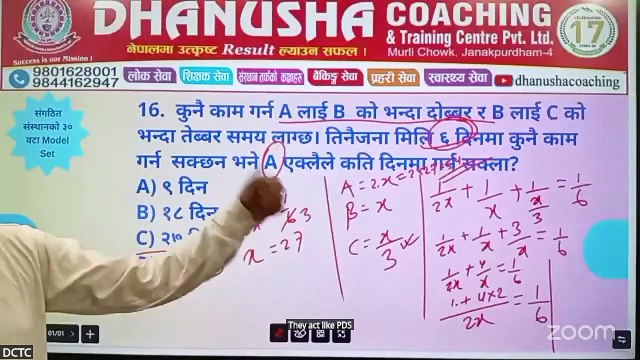 DHANUSHA COACHING
& Training Centre Pvt. Ltd.
नेपालमा उत्कृष्ट Result ल्याउन सफल !
Murli Chowk, Janakpurdham-4
CELEBRATING
17
Success is our Mission!
9801628001
9844162947
लोक सेवा
शिक्षक सेवा
बैकिङ्ग सेवा
प्रहरी सेवा
स्वास्थ्य सेवा
dhanushacoaching
संगठित
संस्थानको ३०
वटा Model
Set
16. कुनै काम गर्न A लाई B को भन्दा दोब्बर र B लाई C को
भन्दा तेब्बर समय लाग्छ। तिनैजना मिलि ६ दिनमा कुनै काम
गर्न सक्छन भने A एक्लैले कति दिनमा गर्न सक्ला?
A) ९ दिन
B) १८ दिन
C) २७
x = 27
B = x
C = x/3
1/2x + 1/x + 1/(x/3) = 1/6
1/2x + 1/x + 3/x = 1/6
1/2x + 4/x = 1/6
1 + 4×2 / 2x = 1/6
They act like PDS
01/01
DCTC
zoom